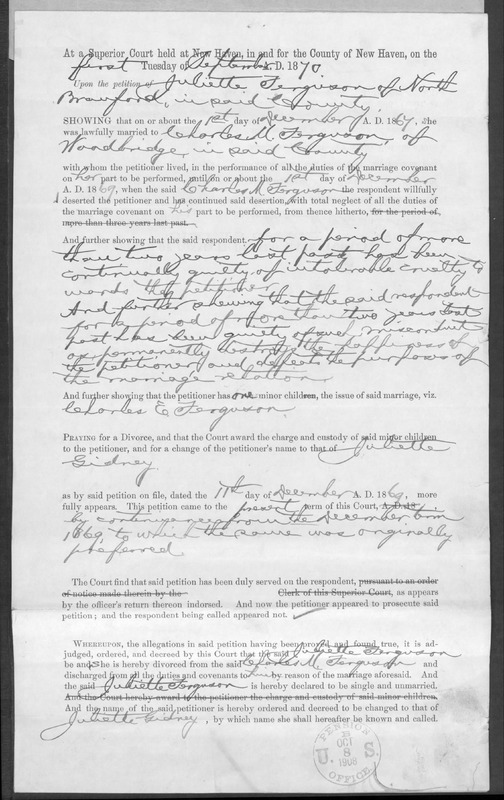 At a Superior Court held at New Haven, in and for the County of New Haven, on the
first Tuesday of September A. D. 1870.
Upon the petition of Juliette Ferguson of North
Branford, in said County,
SHOWING that on or about the 1st day of December A. D. 1867, she
was lawfully married to Charles M. Ferguson, of
Woodbridge, in said County
with whom the petitioner lived, in the performance of all the duties of the marriage covenant
on her part to be performed, until on or about the 1st day of December
A. D. 1869, when the said Charles M. Ferguson the respondent willfully
deserted the petitioner and has continued said desertion, with total neglect of all the duties of
the marriage covenant on his part to be performed, from thence hitherto, for the period of,
more than three years last past.
And further showing that the said respondent for a period of more
than two years last past has been
continually guilty of intolerable cruelty to
wards the petitioner
And further showing that the said respondent
for a period of more than two years last
past has been guilty of such misconduct
as permanently destroys the happiness of
the petitioner and defeats the purposes of
the marriage relation
And further showing that the petitioner has one minor children, the issue of said marriage, viz.
Charles E Ferguson
PRAYING for a Divorce, and that the Court award the charge and custody of said minor children
to the petitioner, and for a change of the petitioner's name to that of Juliette
Gidney
as by said petition on file, dated the 11th day of December A. D. 1869, more
fully appears. This petition came to the present term of this Court, A. D. 18
by continuance from the December term
1869, to which the same was originally
preferred
The Court find that said petition has been duly served on the respondent, pursuant to an order
of notice made therein by the Clerk of this Superior Court, as appears
by the officer's return thereon indorsed. And now the petitioner appeared to prosecute said
petition; and the respondent being called appeared not.
WHEREUPON, the allegations in said petition having been proved and found true, it is ad-
judged, ordered, and decreed by this Court that the said Juliette Ferguson
be and she is hereby divorced from the said Charles M. Ferguson and
discharged from all the duties and covenants to him by reason of the marriage aforesaid. And
the said Juliette Ferguson is hereby declared to be single and unmarried.
And the Court hereby award to the petitioner the charge and custody of said minor children.
And the name of the said petitioner is hereby ordered and decreed to be changed to that of
Juliette Gidney, by which name she shall hereafter be known and called.
PENSION
OCT
8
1908
U. S.
OFFICE